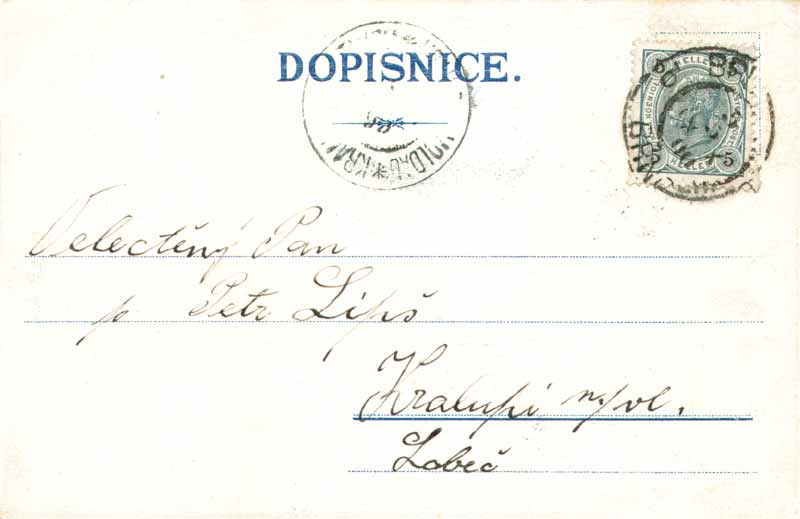 DOPISNICE.
5
Velectěný Pan
p Petr Lipš
Kralupi n./vl.
Lobeč